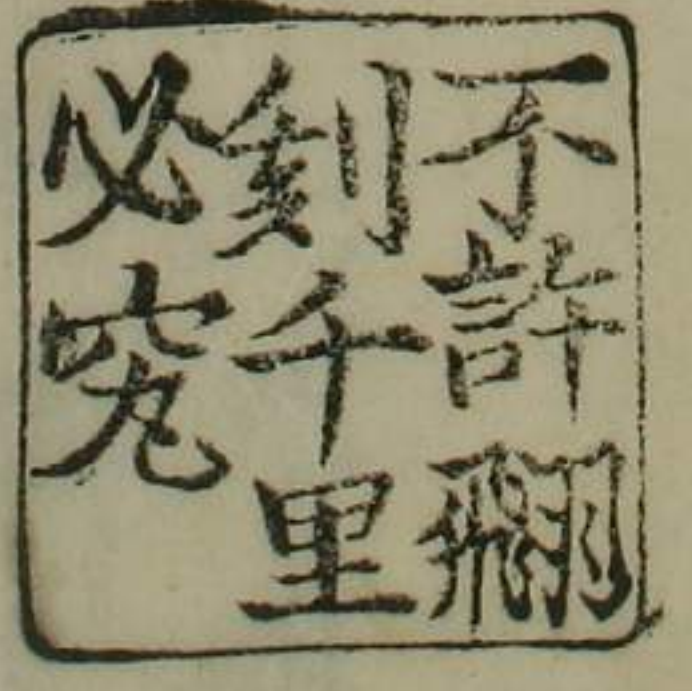 不許翻
刻千里
必究